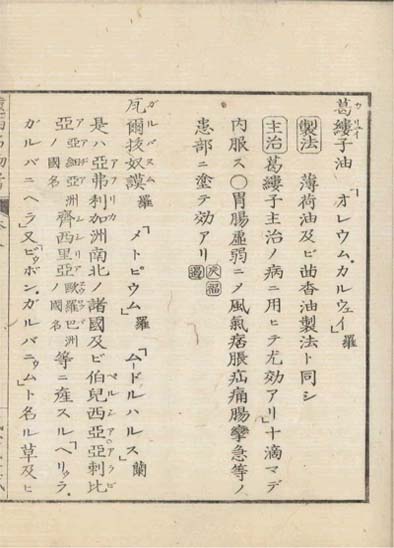 葛縷子油「オレウム、カルウェイ」羅
カリュイ
製法 薄荷油及ビ茴香油製法ト同シ
主治 葛縷子主治ノ病ニ用ヒテ尤効アリ「十滴マデ
内服ス〇胃腸虚弱ニメ風氣痞脹疝痛腸攣急等ノ
患部ニ塗テ効アリ
瓦爾抜奴謨羅「メトピウム」羅「ムードルハルス」蘭
ガルバヌム
是ハ亞弗利加洲南北ノ諸國及ビ伯兒西亞亞剌比
アフリカ ペルシア アラビ
亞ノ國名亞細亞洲齊西里亞歐羅巴洲ノ國名等ニ産スル「ヘリュラ、
ガルバニヘラ」又「ボン、ガルバニュム」ト名ル草及ヒ